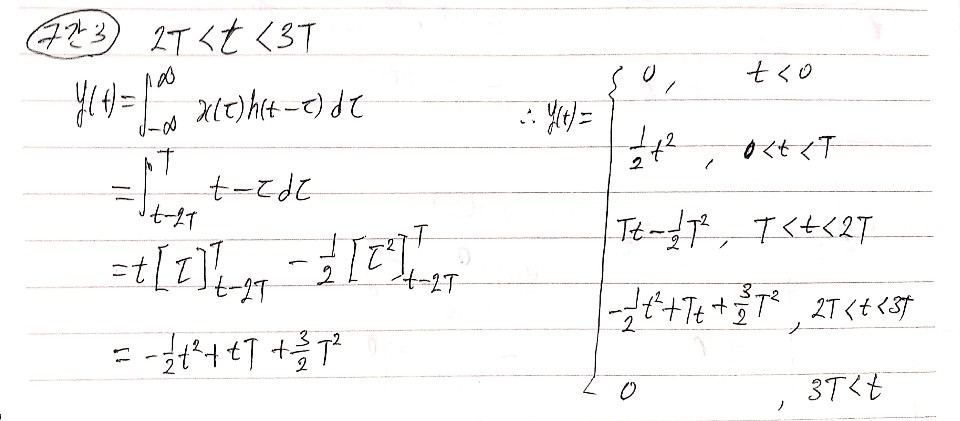 구간3 2T<t<3T
y(t)=∫_{-∞}^{∞} x(τ)h(t-τ)dτ
=∫_{t-2T}^{T} t-τdτ
=t[τ]_{t-2T}^{T} - 1/2[τ²]_{t-2T}^{T}
= -1/2t²+tT+3/2T²
∴ y(t)= { 0, t<0
1/2t², 0<t<T
Tt-1/2T², T<t<2T
-1/2t²+Tt+3/2T², 2T<t<3T
0, 3T<t